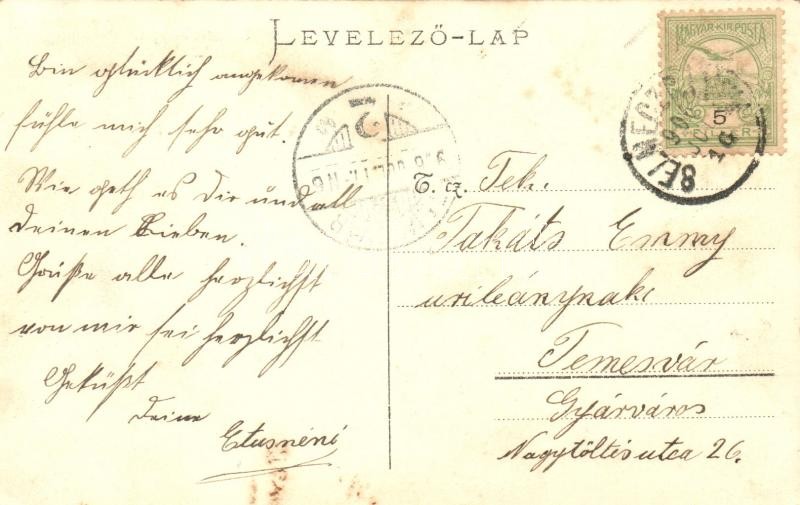 LEVELEZŐ-LAP
Bin glücklich angekomen
fühle mich sehr gut.
Wie geth es Dir und all
deinen Lieben.
Grüße alle herzlichst
von mir sei herzlichst
Geküßt
deine
Etusnéni
MAGYAR·KIR·POSTA
5
T. cz. Tek.
Takáts Emmy
urileánynak
Temesvár
Gyárváros
Nagytöltés utca 26.